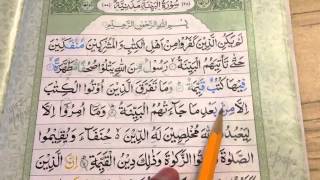 سُورَةُ الْبَيِّنَةِ مَدَنِيَّةٌ
بِسْمِ اللَّهِ الرَّحْمَٰنِ الرَّحِيمِ
لَمْ يَكُنِ الَّذِينَ كَفَرُوا مِنْ أَهْلِ الْكِتَٰبِ وَالْمُشْرِكِينَ مُنْفَكِّينَ
حَتَّىٰ تَأْتِيَهُمُ الْبَيِّنَةُ رَسُولٌ مِنَ اللَّهِ يَتْلُوا صُحُفًا مُطَهَّرَةً
فِيهَا كُتُبٌ قَيِّمَةٌ وَمَا تَفَرَّقَ الَّذِينَ أُوتُوا الْكِتَٰبَ
إِلَّا مِنْ بَعْدِ مَا جَاءَتْهُمُ الْبَيِّنَةُ وَمَا أُمِرُوا إِلَّا
لِيَعْبُدُوا اللَّهَ مُخْلِصِينَ لَهُ الدِّينَ حُنَفَاءَ وَيُقِيمُوا
الصَّلَوٰةَ وَيُؤْتُوا الزَّكَوٰةَ وَذَٰلِكَ دِينُ الْقَيِّمَةِ إِنَّ